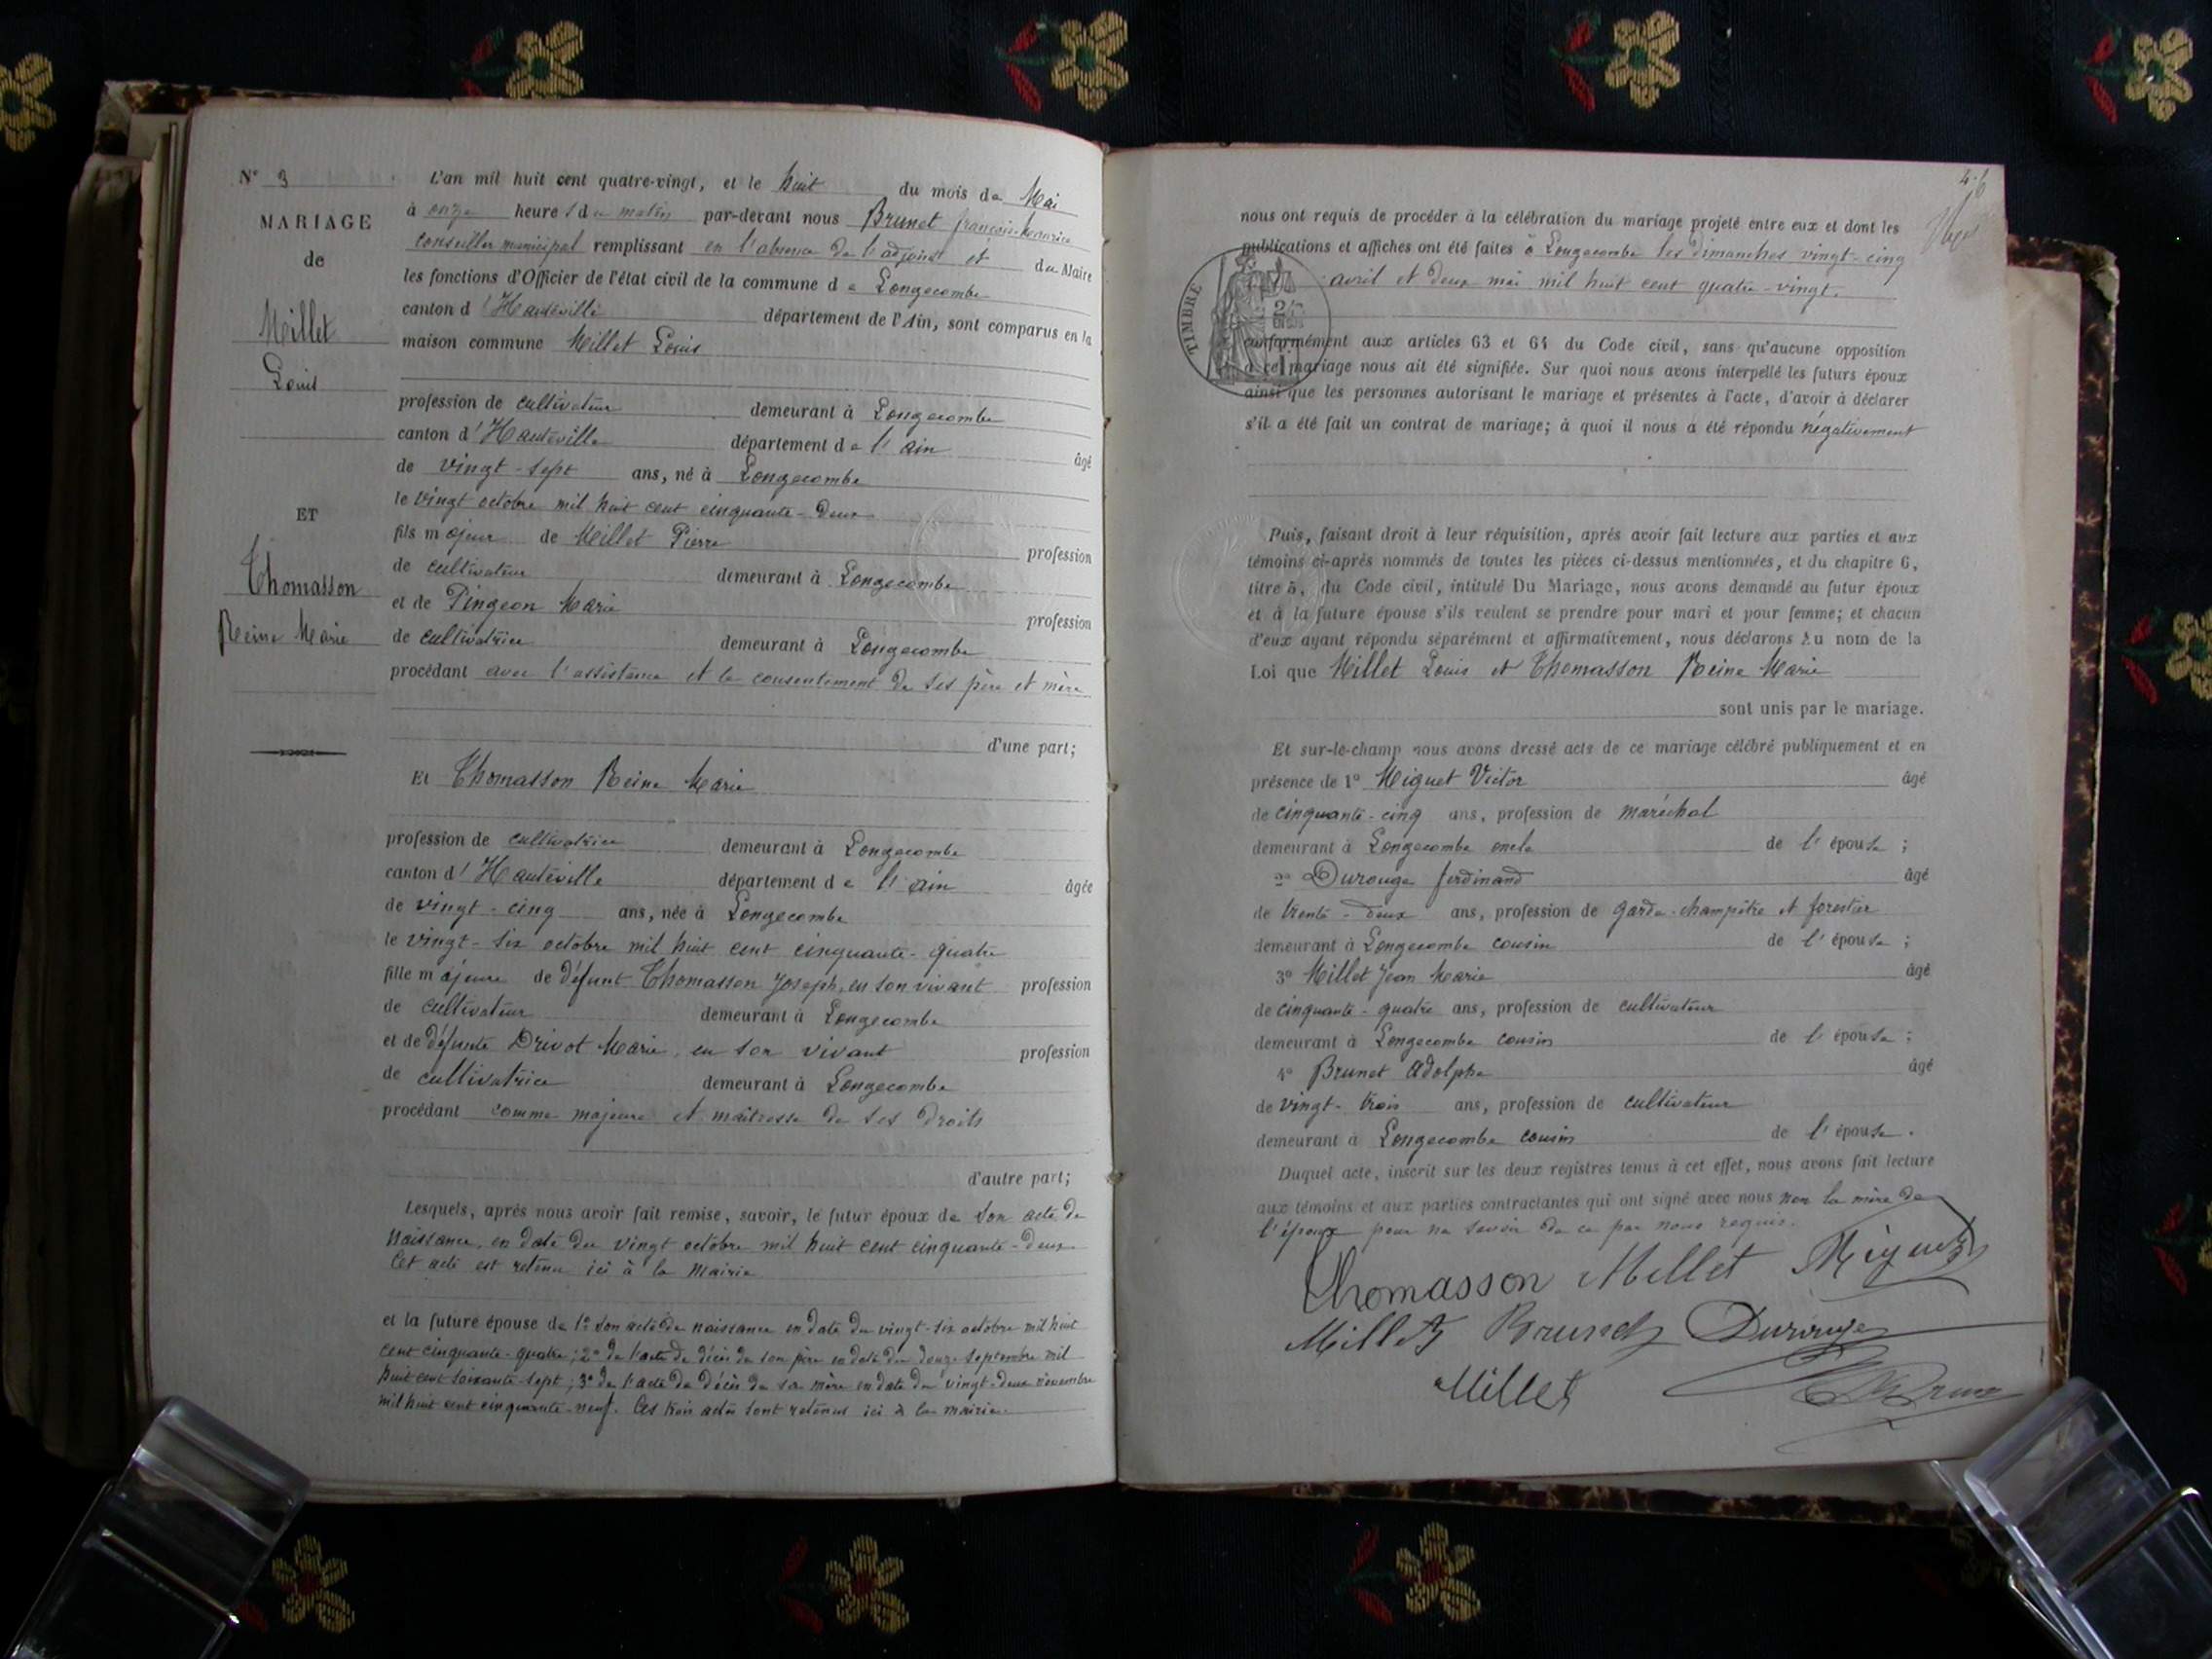 N° 3
MARIAGE
de
Millet
Louis
ET
Thomasson
Reine Marie
L'an mil huit cent quatre-vingt, et le huit du mois de Mai
à onze heures du matin par-devant nous Brunet françois-Maurice
conseiller municipal remplissant en l'absence de l'adjoint et du Maire
les fonctions d'Officier de l'état civil de la commune de Longecombe
canton d'Hauteville département de l'Ain, sont comparus en la
maison commune Millet Louis
profession de cultivateur demeurant à Longecombe
canton d'Hauteville département de l'ain âgé
de vingt-sept ans, né à Longecombe
le vingt octobre mil huit cent cinquante-deux
fils majeur de Millet Pierre profession
de cultivateur demeurant à Longecombe
et de Pingeon Marie profession
de cultivatrice demeurant à Longecombe
procédant avec l'assistance et le consentement de ses père et mère
d'une part;
Et Thomasson Reine Marie
profession de cultivatrice demeurant à Longecombe
canton d'Hauteville département de l'ain âgée
de vingt-cinq ans, née à Longecombe
le vingt-six octobre mil huit cent cinquante-quatre
fille majeure de défunt Thomasson Joseph, en son vivant profession
de cultivateur demeurant à Longecombe
et de défunte Drivot Marie, en son vivant profession
de cultivatrice demeurant à Longecombe
procédant comme majeure et maîtresse de ses droits
d'autre part;
Lesquels, après nous avoir fait remise, savoir, le futur époux de son acte de
naissance, en date du vingt octobre mil huit cent cinquante-deux
Cet acte est retenu ici à la Mairie
et la future épouse de 1° son acte de naissance en date du vingt-six octobre mil huit
cent cinquante-quatre; 2° de l'acte de décès de son père en date du douze septembre mil
huit cent soixante-sept; 3° de l'acte de décès de sa mère en date du vingt-deux novembre
mil huit cent cinquante-neuf. Ces trois actes sont retenus ici à la mairie.
nous ont requis de procéder à la célébration du mariage projeté entre eux et dont les
publications et affiches ont été faites à Longecombe les dimanches vingt-cinq
avril et deux mai mil huit cent quatre-vingt.
TIMBRE
conformément aux articles 63 et 64 du Code civil, sans qu'aucune opposition
à ce mariage nous ait été signifiée. Sur quoi nous avons interpellé les futurs époux
ainsi que les personnes autorisant le mariage et présentes à l'acte, d'avoir à déclarer
s'il a été fait un contrat de mariage; à quoi il nous a été répondu négativement
Puis, faisant droit à leur réquisition, après avoir fait lecture aux parties et aux
témoins ci-après nommés de toutes les pièces ci-dessus mentionnées, et du chapitre 6,
titre 5, du Code civil, intitulé Du Mariage, nous avons demandé au futur époux
et à la future épouse s'ils veulent se prendre pour mari et pour femme; et chacun
d'eux ayant répondu séparément et affirmativement, nous déclarons au nom de la
Loi que Millet Louis et Thomasson Reine Marie
sont unis par le mariage.
Et sur-le-champ nous avons dressé acte de ce mariage célébré publiquement et en
présence de 1° Miguet Victor âgé
de cinquante-cinq ans, profession de maréchal
demeurant à Longecombe oncle de l'épouse;
2° Durouge ferdinand âgé
de trente-deux ans, profession de garde-champêtre et forestier
demeurant à Longecombe cousin de l'épouse;
3° Millet Jean Marie âgé
de cinquante-quatre ans, profession de cultivateur
demeurant à Longecombe cousin de l'épouse;
4° Brunet Adolphe âgé
de vingt-trois ans, profession de cultivateur
demeurant à Longecombe cousin de l'épouse.
Duquel acte, inscrit sur les deux registres tenus à cet effet, nous avons fait lecture
aux témoins et aux parties contractantes qui ont signé avec nous non la mère de
l'époux pour ne savoir de ce par nous requis.
Thomasson Millet Miguet
Millet Brunet Durouge
Millet